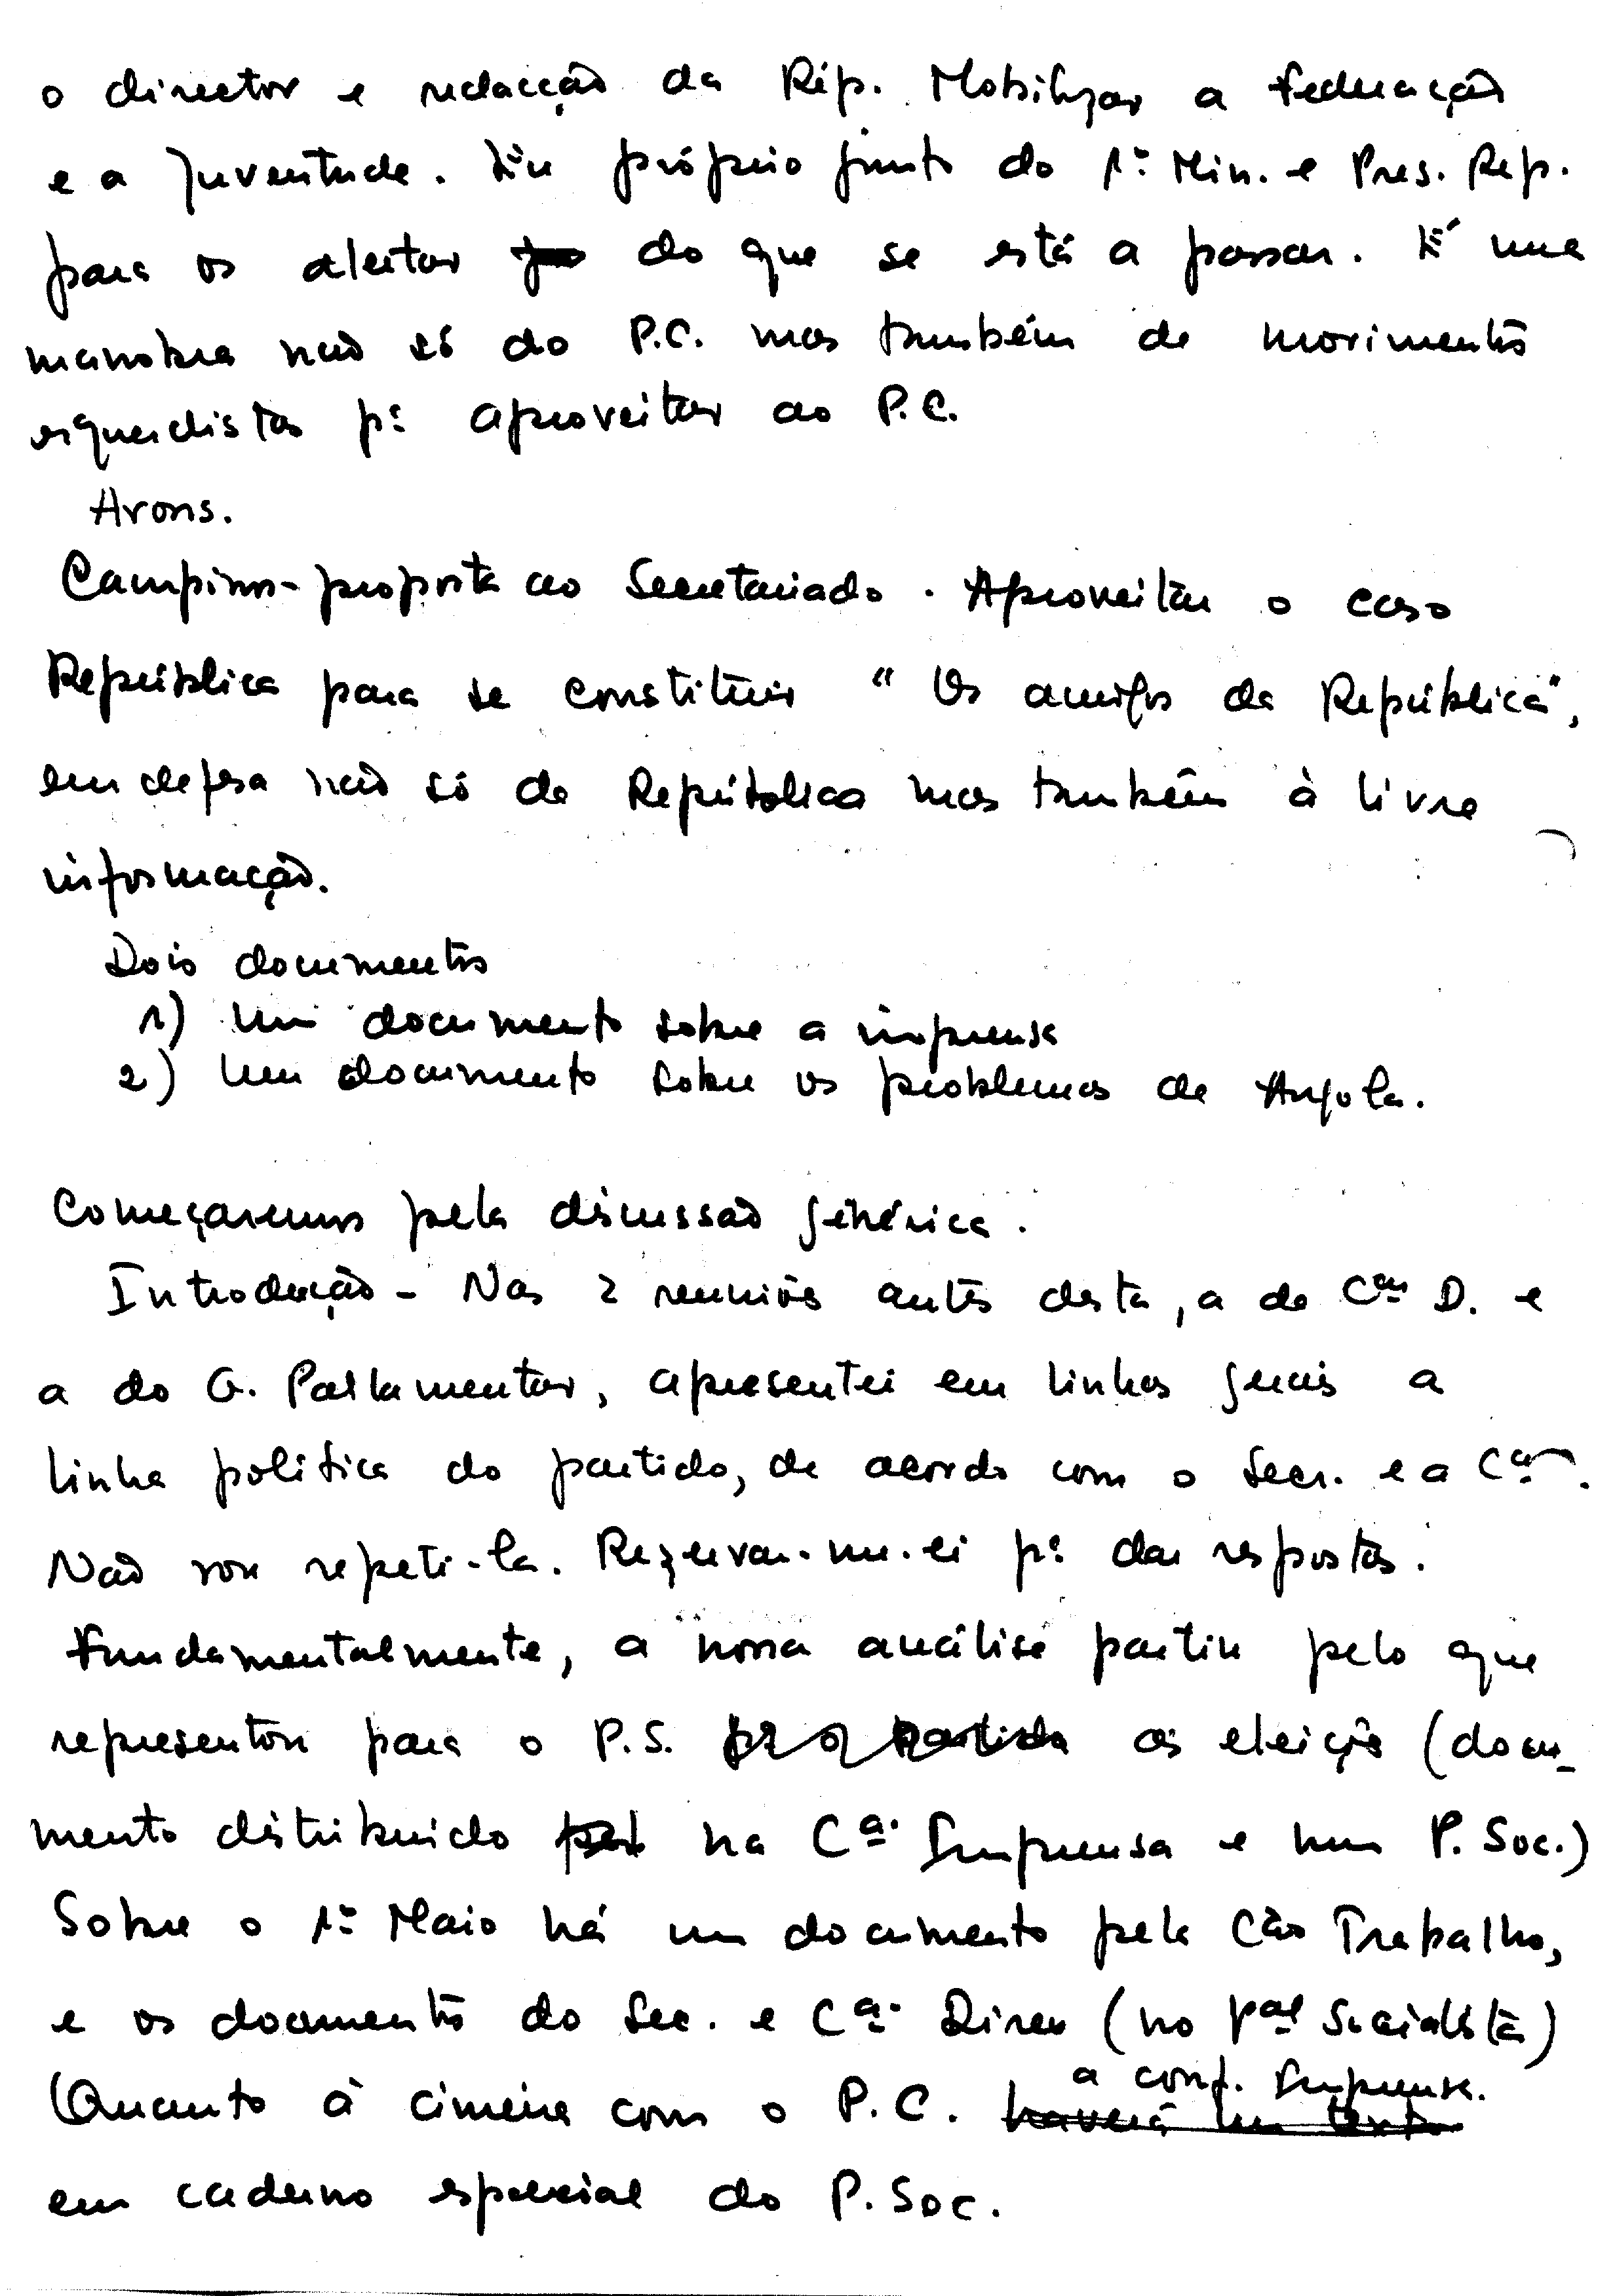 o director e redacção da Rép. Mobilizar a Federação
e a Juventude. Eu próprio junto do 1º Min. e Pres. Rep.
para os alertar do que se está a passar. É uma
manobra não só do P.C. mas também de movimentos
esquerdistas pª aproveitar ao P.C.
Arons.
Campinos - proposta ao Secretariado. Aproveitar o caso
República para se constituir "Os amigos da República",
em defesa não só da República mas também à livre
informação.
Dois documentos
1) Um documento sobre a imprensa
2) Um documento sobre os problemas de Angola.
Começaremos pela discussão genérica.
Introdução - Nas 2 reuniões antes desta, a da Cão D. e
a do G. Parlamentar, apresentei em linhas gerais a
linha política do partido, de acordo com o Secr. e a Cão.
Não vou repeti-la. Rezervar-me-ei pª dar respostas.
Fundamentalmente, a nossa análise partiu pelo que
representou para o P.S. as eleições (docu-
mento distribuido na Cª. Imprensa e num P. Soc.)
Sobre o 1º Maio há um documento pela Cão Trabalho,
e os documentos do Sec. e Cª. Direc (no Pal Socialista)
(Quanto à cimeira com o P.C. a conf. Imprensa.
em caderno especial do P. Soc.